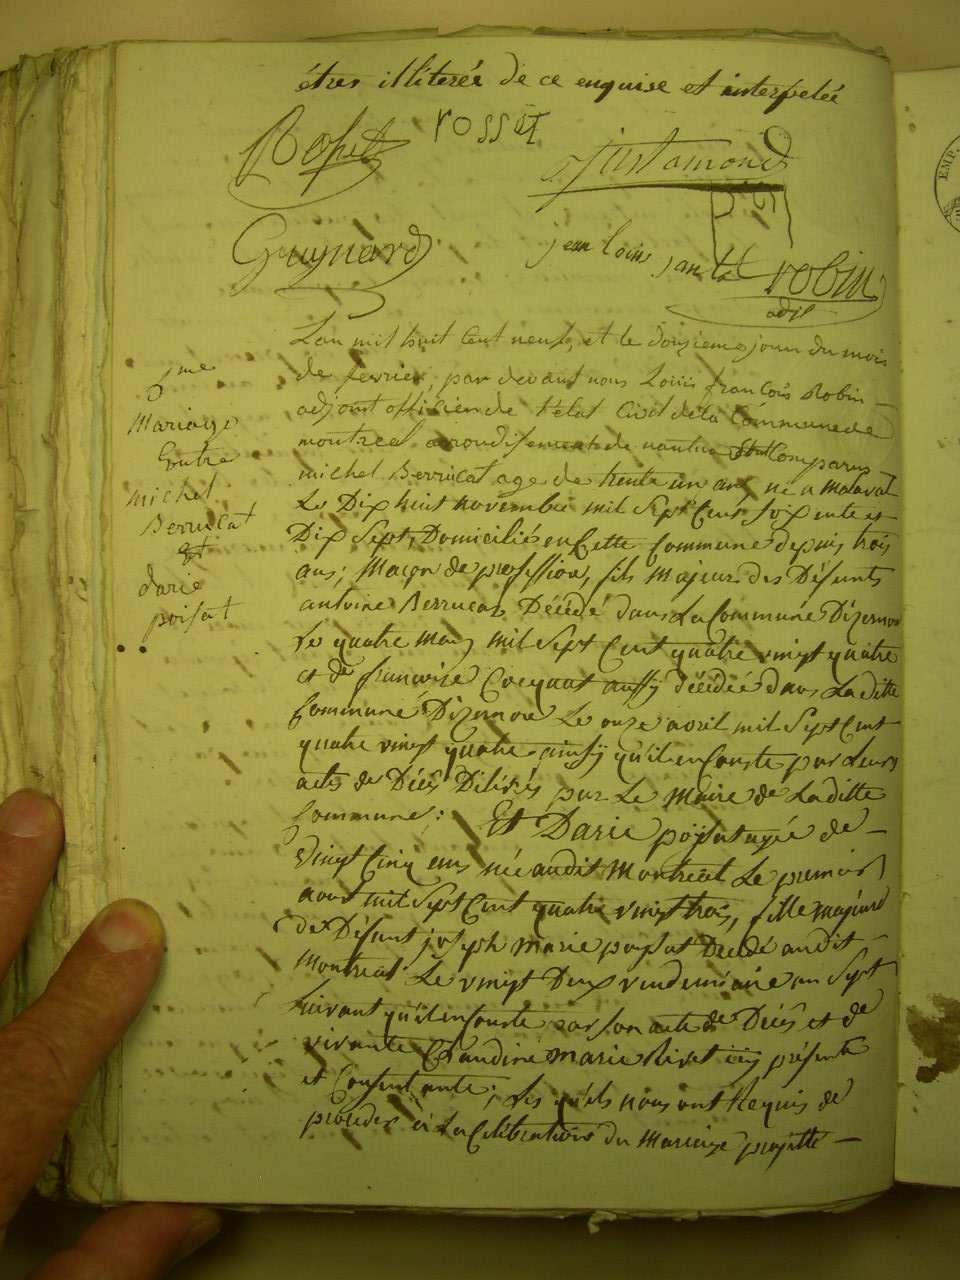 étres illiterée de ce enquise et interpelée
Rosset
rossET
Justamond
Guynard
jean louis jantet
robin
adjt
L'an mil huit cent neuf, et le douzieme jour du mois
de fevrier, par devant nous Louis françois Robin
adjoint officier de l'état Civil de la Commune de
montreal arrondissement de nantua Est Comparus
michel Berrucat age de trente un ans né a
Le Dix huit novembre mil Sept Cent soixente et
Dix Sept, Domicilié en Cette Commune depuis trois
ans, Maçon de profession, fils Majeur des Défunts
antoine Berrucat Décédé dans La Commune Dizernore
Le quatre mars mil Sept Cent quatre vingt quatre
et de françoise Cocquat aussy décédée dans Laditte
Commune Dizernore Le onze avril mil Sept Cent
quatre vingt quatre ainsy qu'il en Conste par Leurs
acts de Décès Délivrés par Le Maire de Laditte
Commune; Et Darie poisat agée de
vingt Cinq ans née audit Montreal Le premier
aout mil Sept Cent quatre vingt trois, fille majeure
de Défunt joseph Marie poysat Décédé audit
Montreal Le vingt Deux vendemiaire an Sept
suivant qu'il en Conste par son acte de Décès et de
vivante Claudine Marie Rivet icy présente
et Consentante; Les qu'els nous ont Requis de
proceder à La Célébration du Mariage projetté
Mariage
Entre
Michel
Berrucat
et
darie
poisat